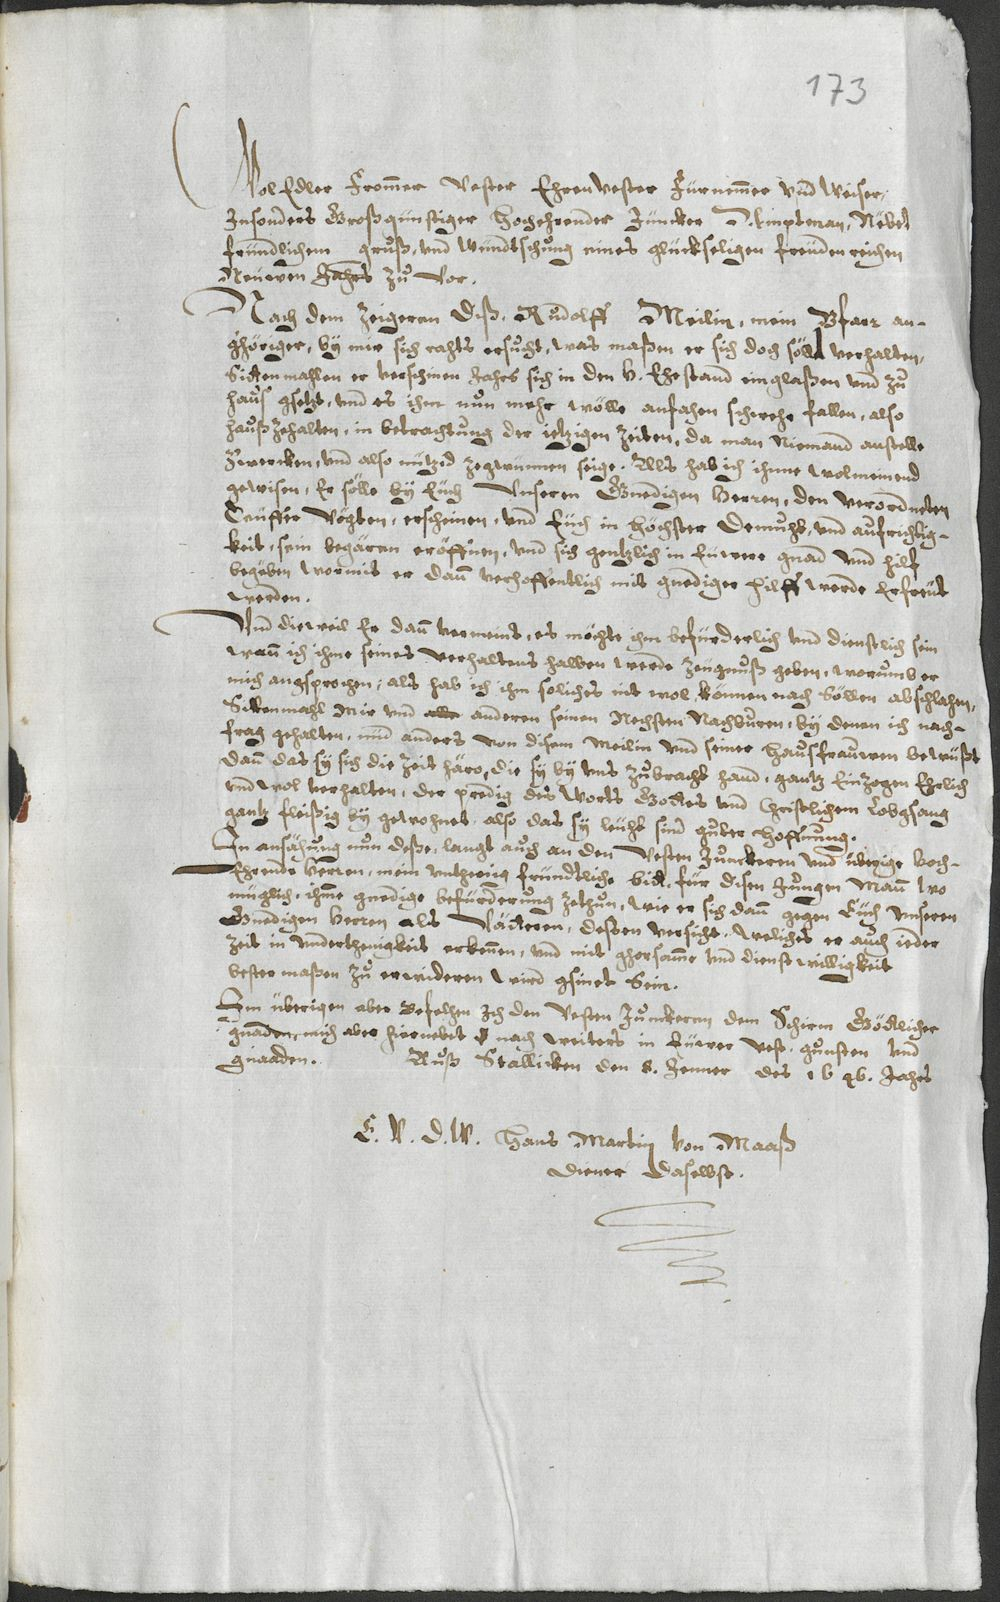 173
Wol Edler Frommer Vester Ehrenvester Fürnemmer und Weiser,
Insonders Großgünstiger Hochehrender Juncker Amptman, Nebet
fründlichem gruß, und wündtschung eines glückseligen freüdenreichen
Neüwen Jahrs zu vor.
Nach dem Zeigeren diß, Rudolff Meilin, mein Pfarr an-
ghöriger, by mir sich rahts ersucht, was maßen er sich doch sölle verhalten,
Sittenmahlen er verschinen Jahrs sich in den H. Ehestand einglaßen und zu
haus gsetzt, und es ihm nun mehr wölle anfahen schwehr fallen, also
haußzehalten, in betrachtung der ietzigen Zeiten, da man Niemand anstelle
zwercken, und also nützid zegwünnen seige. Als hab ich ihme wolmeinend
gewisen, Er sölle by Euch Unseren Gnedigen Herren, den verordneten
vögten, erscheinen, und Euch in höchster Demuht, und aufrichtig-
keit, sein begären eröffnen, und sich gentzlich in Euwere gnad und hilf
begeben wormit er dann verhoffentlich mit gnediger hilff werde erfreüt
werden.
Und dieweil Er dann vermeint, es möchte ihm befürderlich und dienstlich sein
wann ich ihme seines verhaltens halben werde Zeügnuß geben, worumb er
mich angsprochen; als hab ich ihm soliches nit wol können nach söllen abschlahen,
Sittenmahl Mir und anderen seinen Nechsten Nachburen, by denen ich nach-
frag gehalten, nüd anders von disem Meilin und seiner Hausfrauwen bewüßt
dann das sy sich die Zeit häro, die sy by uns zubracht hand, gantz Einzogen Ehrlich
und wol verhalten, der predig des Worts Gottes und Christlichem Lobgsang
gantz fleißig bygewohnet, also das sy leüht sind guter Hoffnung.
In ansähung nun deße, langt auch an den Vesten Junckeren und übrige Hoch-
Ehrende Herren, mein fründtliche bitt, für disen Jungen Mann wo
müglich, ihme gnedige befürderung zethun, wie er sich dann gegen Euch unseren
Gnedigen Herren als Vätteren, deßen versicht. Weliches er auch ieder
Zeit in underthenigkeit erkennen, und mit ghorsamme und dienstwilligkeit
bester maßen zu erwideren wird gsinet sein.
Im übrigen aber Befelhen Ich den Vesten Junckeren dem Schirm Göttlicher
gnaden, mich aber hiernebet nach weiters in Euwer vest. gunsten und
gnaaden. Auß Stallicken den 8. Jenner des 1646. Jahrs
E. V. D. W. Hans Martin von Maaß
Diener Daselbst.